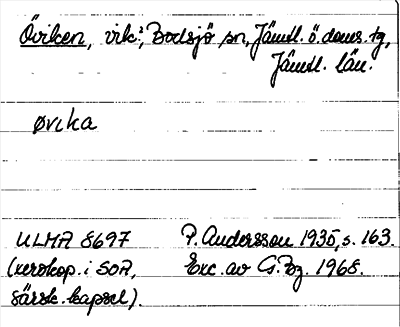 Öviken, vik?, Bodsjö sn, Jämtl. ö. doms. tg,
Jämtl. län.
øvika
ULMA 8697 P. Andersson 1935, s. 163.
(xerokop. i SOA, Exc. av G. Bg. 1968.
särsk. kapsel).